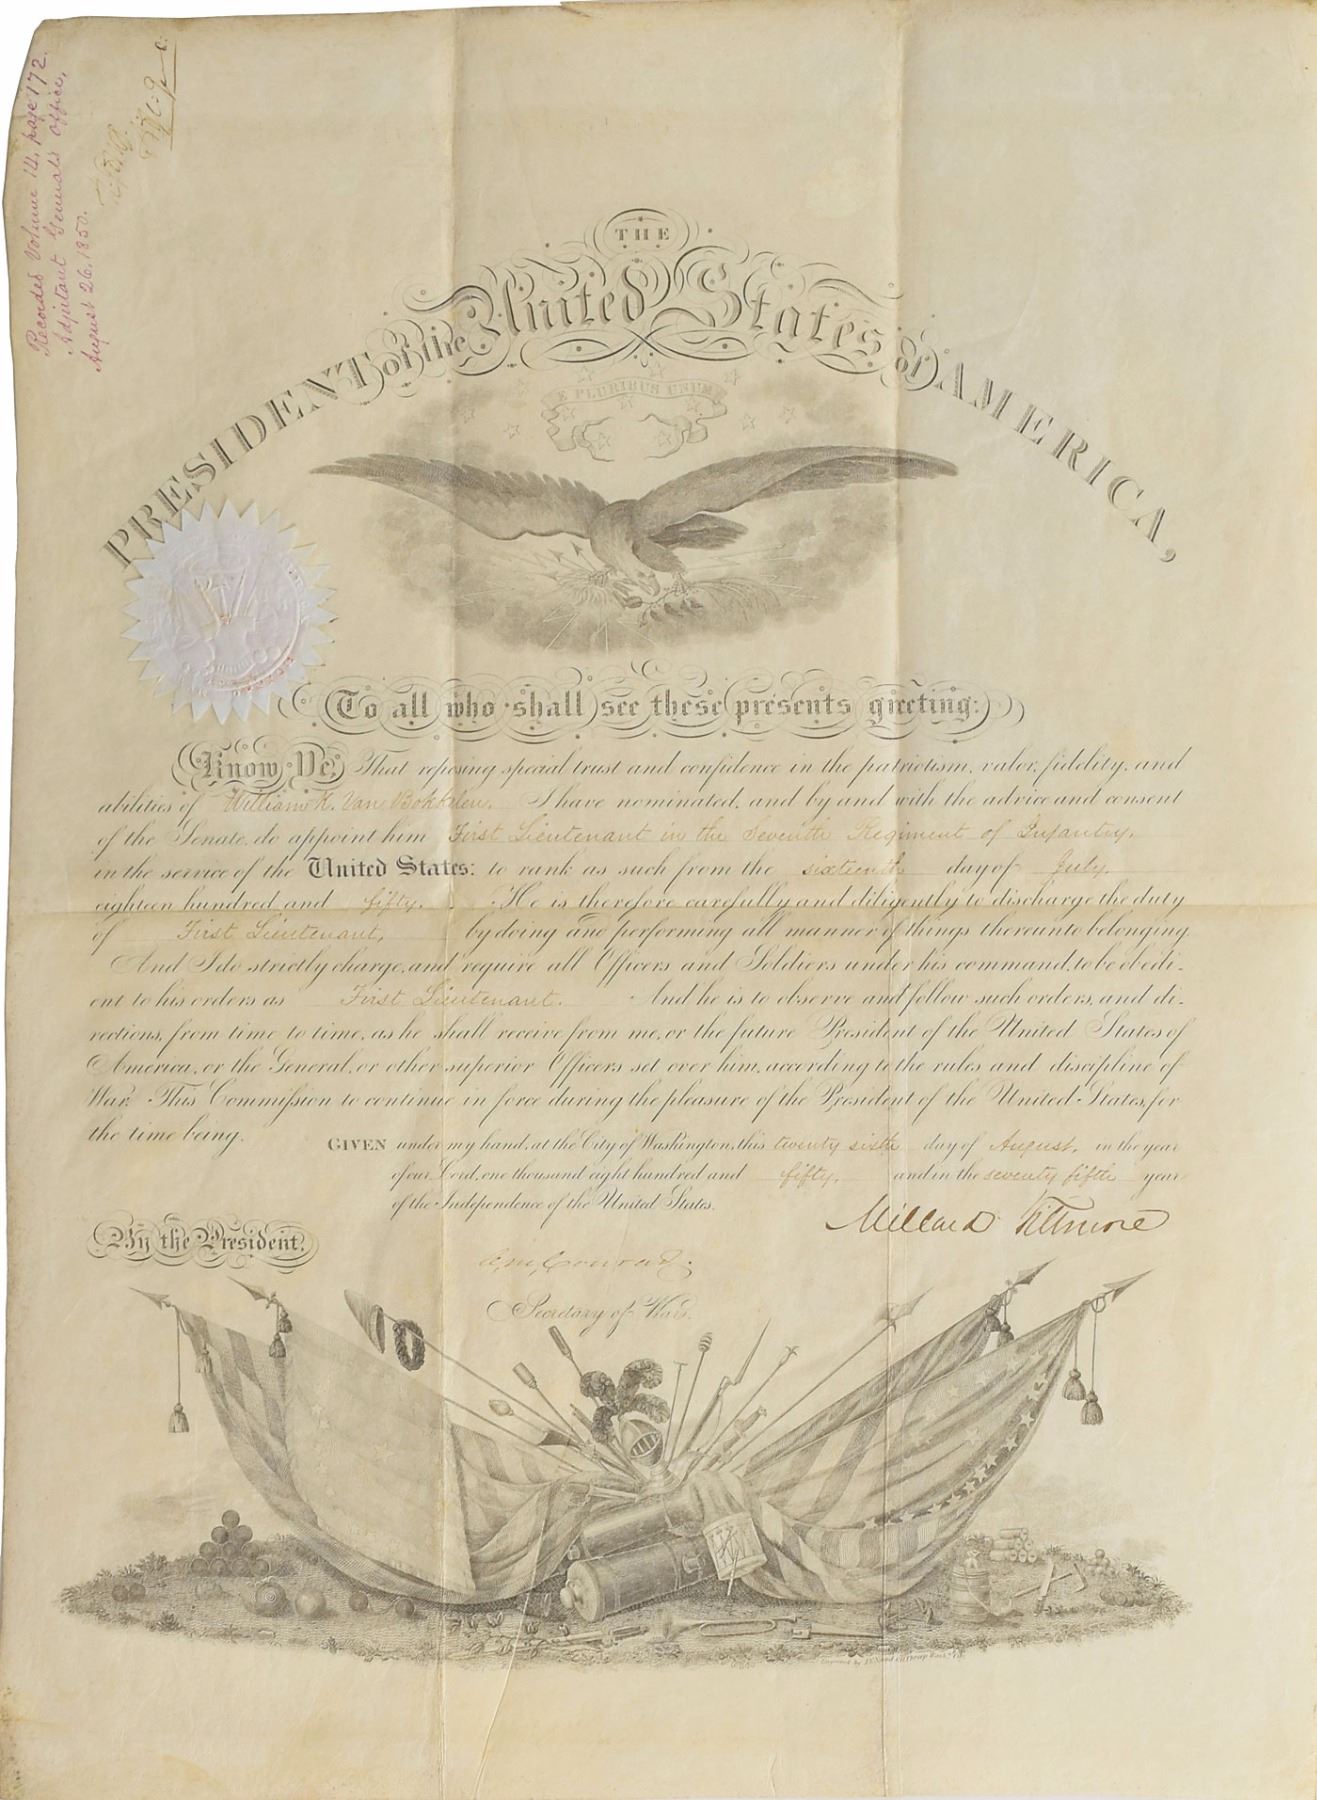 Recorded Volume 14, page 172.
Adjutant General's Office,
August 26, 1850.
THE
PRESIDENT of the United States of AMERICA,
E PLURIBUS UNUM
To all who shall see these presents greeting:
Know Ye, That reposing special trust and confidence in the patriotism, valor, fidelity, and
abilities of William K. Van Bokkelen, I have nominated, and by and with the advice and consent
of the Senate, do appoint him First Lieutenant in the Seventh Regiment of Infantry,
in the service of the United States: to rank as such from the sixteenth day of July,
eighteen hundred and fifty. He is therefore carefully and diligently to discharge the duty
of First Lieutenant, by doing and performing all manner of things thereunto belonging.
And I do strictly charge, and require all Officers and Soldiers under his command, to be obedi-
ent to his orders as First Lieutenant. And he is to observe and follow such orders, and di-
rections, from time to time, as he shall receive from me, or the future President of the United States of
America, or the General, or other superior Officers set over him, according to the rules and discipline of
War. This Commission to continue in force during the pleasure of the President of the United States, for
the time being.
GIVEN under my hand, at the City of Washington, this twenty sixth day of August, in the year
of our Lord, one thousand eight hundred and fifty, and in the seventy fifth year
of the Independence of the United States.
Millard Fillmore
By the President.
C. M. Conrad.
Secretary of War.